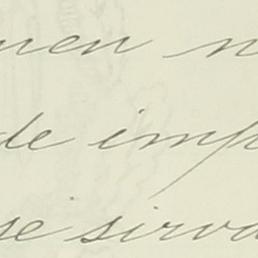 men n
de imp
se sirva